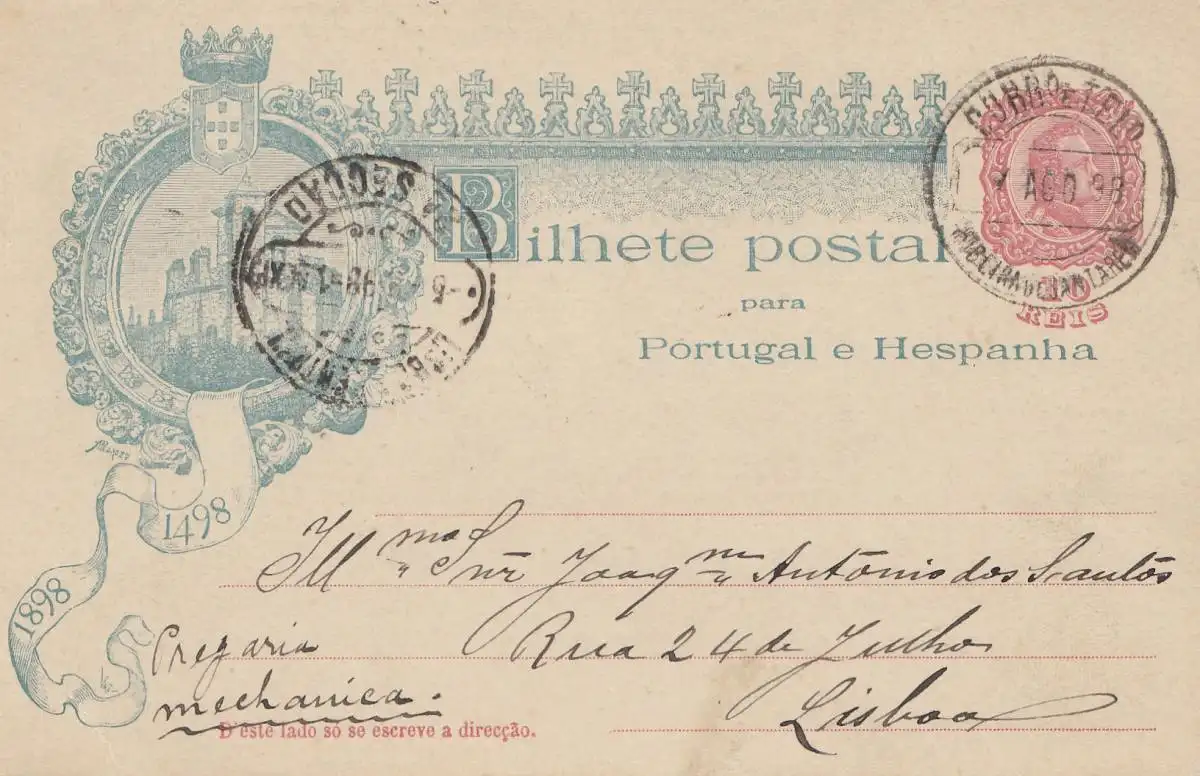 Bilhete postal
para
Portugal e Hespanha
10
REIS
CORREIO E TELO
AGO 98
RIBEIRA DE SANTAREM
2A SECÇAO
1498
1898
Ill.mo Snr Joaqm Antonio dos Santos
Rua 24 de Julho
Lisboa
Pregaria
mechanica.
D'este lado só se escreve a direcção.